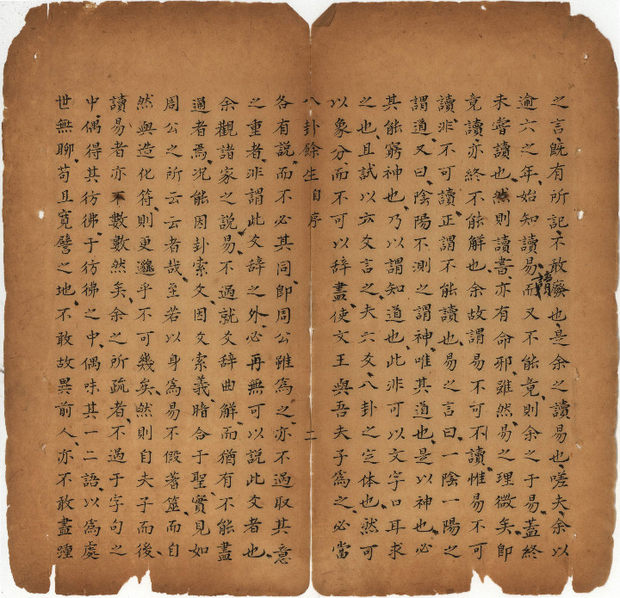 之言既有所記不敢廢也是余之讀易也嗟夫余以
讀
逾六之年始知讀易而又不能竟則余之于易蓋終
未嘗讀也然則讀書亦有命邪雖然易之理微矣即
竟讀亦終不能解也余故謂易不可不讀惟易不可
讀非不可讀正謂不能讀也易之言曰一陰一陽之
謂道又曰陰陽不測之謂神唯其道也是以神也必
其能窮神也乃以謂知道也此非可以文字口耳求
之也且試以六爻言之夫六爻八卦之定体也然可
以象分而不可以辭盡使文王與吾夫子為之必當
八卦餘生自序 二
各有說而不必其同即周公雖為之亦不過取其意
之重者非謂此爻辭之外必再無可以說此爻者也
余觀諸家之說易不過就爻辭曲解而猶有不能盡
通者焉況能因卦索爻因爻索義暗合于聖實見如
周公之所云云者哉至若以身為易不假蓍筮而自
然與造化符則更邈乎不可幾矣然則自夫子而後
讀易者亦不數數然矣余之所疏者不過于字句之
中偶得其彷彿于彷彿之中偶味其一二語以為處
世無聊苟且寬譬之地不敢故異前人亦不敢盡